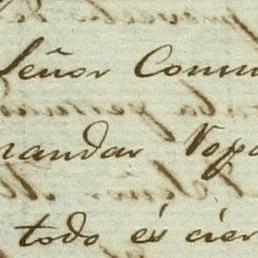 Señor Comm
mandar Vopo
todo és cier